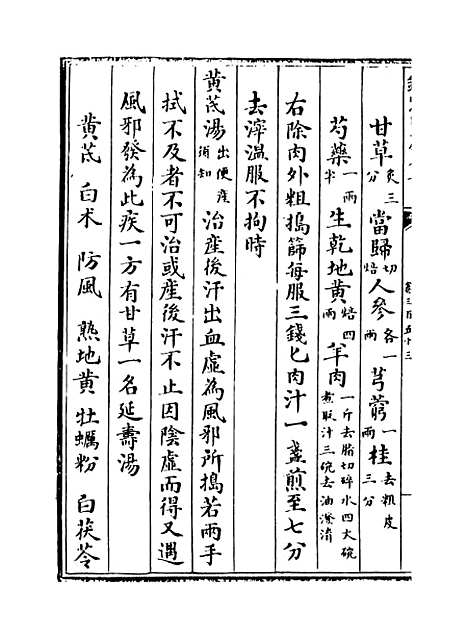 甘草炙三分 當歸切焙 人參各一兩 芎藭一兩 桂去粗皮三分
芍藥一兩半 生乾地黄焙四兩 羊肉一斤去脂切碎水四大碗煮取汁三碗去油澄清
右除肉外粗搗篩每服三錢匕肉汁一盞煎至七分
去滓温服不拘時
黄芪湯出便産須知 治産後汗出血虚為風邪所搗若兩手
拭不及者不可治或産後汗不止因陰虚而得又遇
風邪發為此疾一方有甘草一名延壽湯
黄芪 白术 防風 熟地黄 牡蠣粉 白茯苓